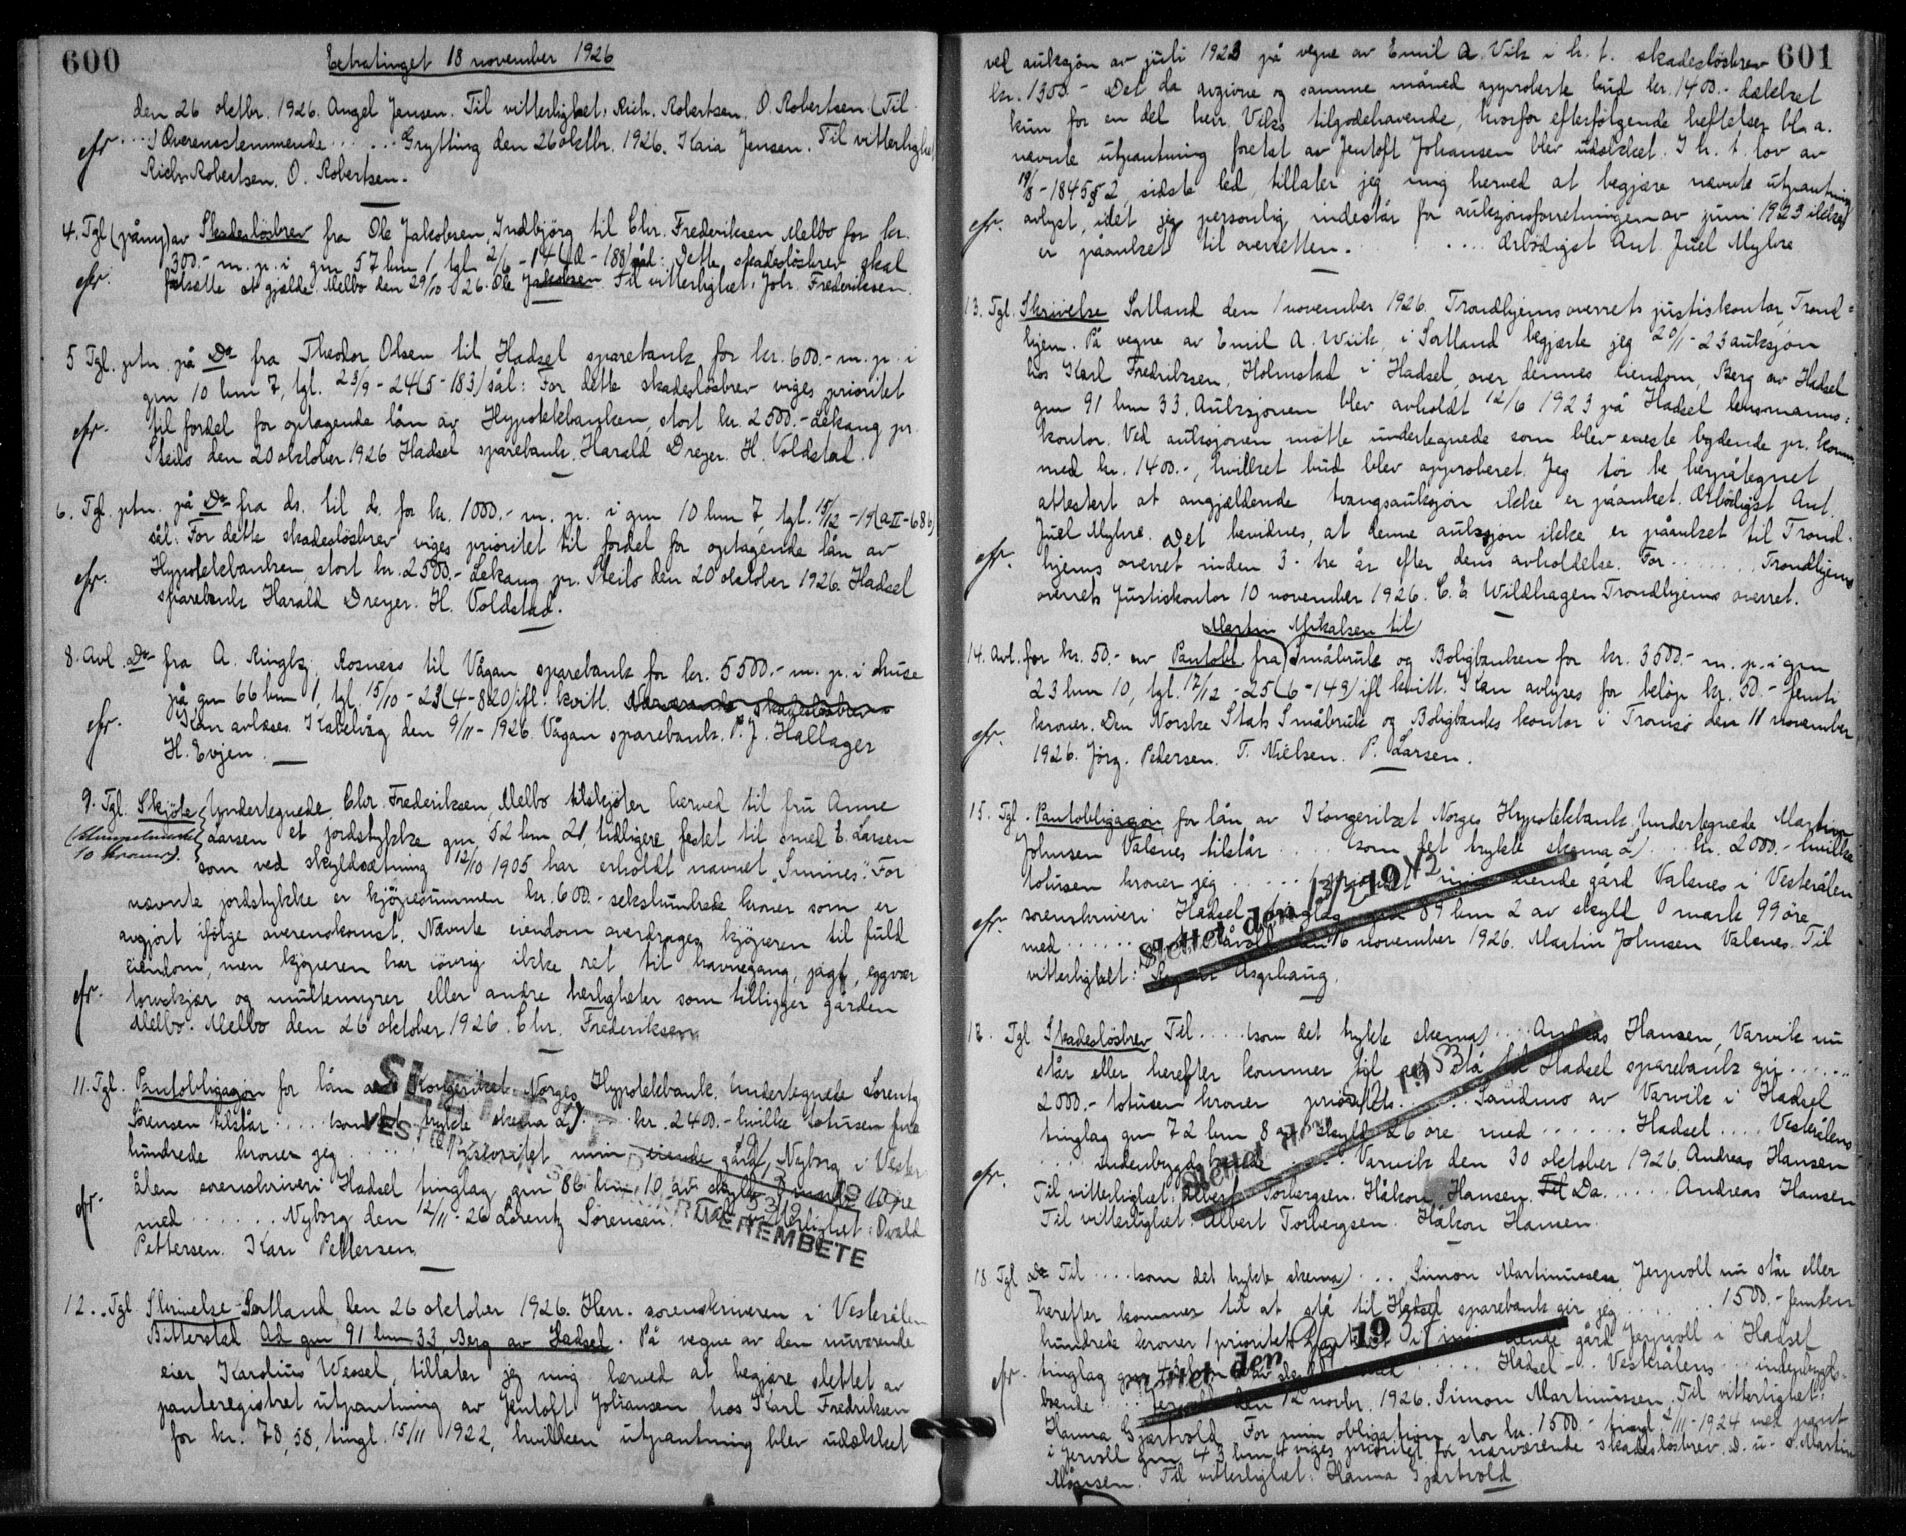 600
Extratinget 18 november 1926
den 26 oktbr. 1926. Angel Jensen. Til vitterlighet: Rich. Robertsen. O. Robertsen (Til
..... Overensstemmende ..... Grytting den 26 oktbr. 1926. Kaia Jensen. Til vitterlighet
Rich. Robertsen. O. Robertsen.
4. Tgl (påny) av Skadesløsbrev fra Ole Jakobsen, Indbjörg til Chr. Frederiksen Melbo for kr.
300.- m. p. i gnr 57 bnr 1 tgl. 2/6 - 14 - 188 sål: Dette skadesløsbrev skal
fortsætte at gjælde. Melbo den 29/10 - 26. Ole Jakobsen. Til vitterlighet: Joh. Frederiksen.
5 Tgl. ptn. på Do fra Theodor Olsen til Hadsel sparebank for kr. 600.- m. p. i
gnr 10 bnr 7, tgl. 23/9 - 24 (5 - 183) sål: For dette skadesløsbrev viges prioritet
til fordel for optagende lån av Hypotekbanken, stort kr. 2500.- Lekang pr.
Steilo den 20 oktober 1926 Hadsel sparebank. Harald Dreyer. H. Voldstad.
6. Tgl. ptn. på Do fra ds. til ds. for kr. 1000.- m. p. i gnr 10 bnr 7, tgl. 15/12 - 19 (a II - 686)
sål: For dette skadesløsbrev viges prioritet til fordel for optagende lån av
Hypotekbanken, stort kr. 2500.- Lekang pr. Steilo den 20 oktober 1926. Hadsel
sparebank Harald Dreyer. H. Voldstad.
8. Avl. Do fra A. Ringby Rosnes til Vågan sparebank for kr. 5500.- m. p. i huse
på gnr 66 bnr 1, tgl. 15/10 - 23 (4 - 820) ifl. kvitt. Nærværende skadesløsbrev
Kan avlæses. Kabelvåg den 9/11 - 1926. Vågan sparebank. P. J. Hallager
H. Evjen.
9. Tgl. Skjöte Undertegnede Chr. Frederiksen, Melbo tilskjöter herved til fru Anne
(Stempelmerke 10 kroner). Larsen et jordstykke gnr 52 bnr 21, tidligere festet til smed E. Larsen
som ved skyldsætning 12/10 1905 har erholdt navnet "Smines". For
nævnte jordstykke er kjöpesummen kr. 600.- sekshundrede kroner som er
avgjort ifölge overenskomst. Nævnte eiendom overdrages kjöperen til fuld
eiendom, men kjöperen har iövrig ikke ret til havnegang, jagt, eggvær
torvskjær og multemyrer eller andre herligheter som tilligger gården
Melbo. Melbo den 26 oktober 1926. Chr. Frederiksen
11. Tgl. Pantobligasjon for lån av Kongeriket Norges Hypotekbank. Undertegnede Lorentz
Sörensen tilstår ..... (som det trykte skema à) ..... kr. 2400.- hvilke totusen fire
hundrede kroner jeg ..... 1 prioritet min eiende gård Nyborg i Vester
ålen sorenskriveri Hadsel tinglag gnr 86 bnr 10 av skyld 0 mark 10 öre
med ....... Nyborg den 12/11 - 26 Lorentz Sörensen. Til vitterlighet: Osvald
Pettersen. Kari Pettersen
SLETTET
VESTERÅLEN SORENSKRIVEREMBETE
12. Tgl. Skrivelse Sortland den 26 oktober 1926. Herr. sorenskriveren i Vesterålen
Bitterstad Ad gnr 91 bnr 33 Berg av Hadsel. På vegne av den nuværende
eier Karolius Wessel, tillater jeg mig herved at begjære slettet av
panteregistret utpantning av Jentoft Johansen hos Karl Fredriksen
for kr. 78,58, tingl. 15/11 1922, hvilken utpantning blev udækket
601
ved auksjon av juli 1923 på vegne av Emil A. Vik i h. t. skadesløsbrev
kr. 1300.- Det da avgivne og samme måned approberte bud kr. 1400.- dækket
kun for en del herr Viks tilgodehavende, hvorfor efterfölgende heftelser bl. a.
nævnte utpantning foretat av Jentoft Johansen blev udækket. I h. t. lov av
19/8 - 1845 § 2, sidste led, tillater jeg mig herved at begjære nævnte utpantning
avlyst, idet jeg personlig indestår for auksjonsforretningen av juni 1923 ikke
er påanket til overretten. ..... Ærbödigst Ant. Juel Myhre
13. Tgl. Skrivelse Sortland den 1 november 1926. Trondhjems overrets justiskontor, Trond=
hjem. På vegne av Emil A. Wiik, i Sortland begjærte jeg 20/11 - 23 auksjon
hos Karl Fredriksen, Holmstad i Hadsel, over dennes eiendom, Berg av Hadsel
gnr 91 bnr 33. Auksjonen blev avholdt 12/6 1923 på Hadsel lensmanns=
kontor. Ved auksjonen mötte undertegnede som blev eneste bydende pr. komm.
med kr. 1400.-, hvilket bud blev approberet. Jeg tör be herpåtegnet
attestert at angjældende tvangsauksjon ikke er påanket. Ærbödigst Ant.
Juel Myhre. Det bevidnes, at denne auksjon ikke er påanket til Trond-
hjems overret inden 3 - tre år efter dens avholdelse. For ....... Trondhjems
overrets Justiskontor 10 november 1926. C. E. Wildhagen Trondhjems overret.
Martin Mikalsen til
14. Avl. for kr. 50.- av Pantobl. fra Småbruk og Boligbanken for kr. 3500.- m. p. i gnr
23 bnr 10, tgl. 17/12 - 25 (6 - 149) ifl kvitt. Kan avlyses for belöp kr. 50.- femti
kroner. Den Norske Stats Småbruk og Boligbanks kontor i Tromsö den 11 november
1926. Jörg. Pedersen. T. Nielsen. P. Larsen.
15. Tgl. Pantobligasjon for lån av Kongeriket Norges Hypotekbank. Undertegnede Martin
Johnsen Valsnes tilstår ..... (som det trykte skema à) ..... kr. 2000.- hvilke
totusen kroner jeg ..... 1 prioritet min eiende gård Valsnes i Vesterålen
sorenskriveri Hadsel tinglag gnr 89 bnr 2 av skyld 0 mark 99 öre
med ....... den 16 november 1926. Martin Johnsen Valsnes. Til
vitterlighet: Asgehaug.
Slettet den 13/2 1942
Tgl Skadesløsbrev Til ..... (som det trykte skema) ..... Andreas Hansen, Varvik nu
står eller herefter kommer til at stå til Hadsel sparebank gir .....
2000.- totusen kroner prioritet ..... Sandmo av Varvik i Hadsel
tinglag gnr 72 bnr 8 av skyld 26 öre med ...... Hadsel .... Vesterålens
.... indenbygds boende ..... Varvik den 30 oktober 1926. Andreas Hansen
Til vitterlighet: Albert Torbergsen. Håkon Hansen. Til Da ...... Andreas Hansen
Til vitterlighet: Albert Torbergsen. Håkon Hansen.
Slettet den 1953
18 Tgl Do Til ..... (som det trykte skema) ... Simon Martinussen Jerjvoll nu står eller
herefter kommer til at stå til Hadsel sparebank gir jeg ....... 1500.- femten
hundrede kroner 1 prioritet eiende gård Jerjvoll i Hadsel
tinglag gnr 43 bnr av skyld med ..... Hadsel ... Vesterålens ... indenbygds-
boende ..... den 12 novbr. 1926. Simon Martinussen. Til vitterlighet:
Hanna Gjærtvold. For min obligation stor kr. 1500.- tingl. /11 - 1924 med pant
i Jervoll gnr 43 bnr 4 viges prioritet for nærværende skadesløsbrev. D. u. s. Martin
Månsen. Til vitterlighet: Hanna Gjærtvold
Slettet den 19